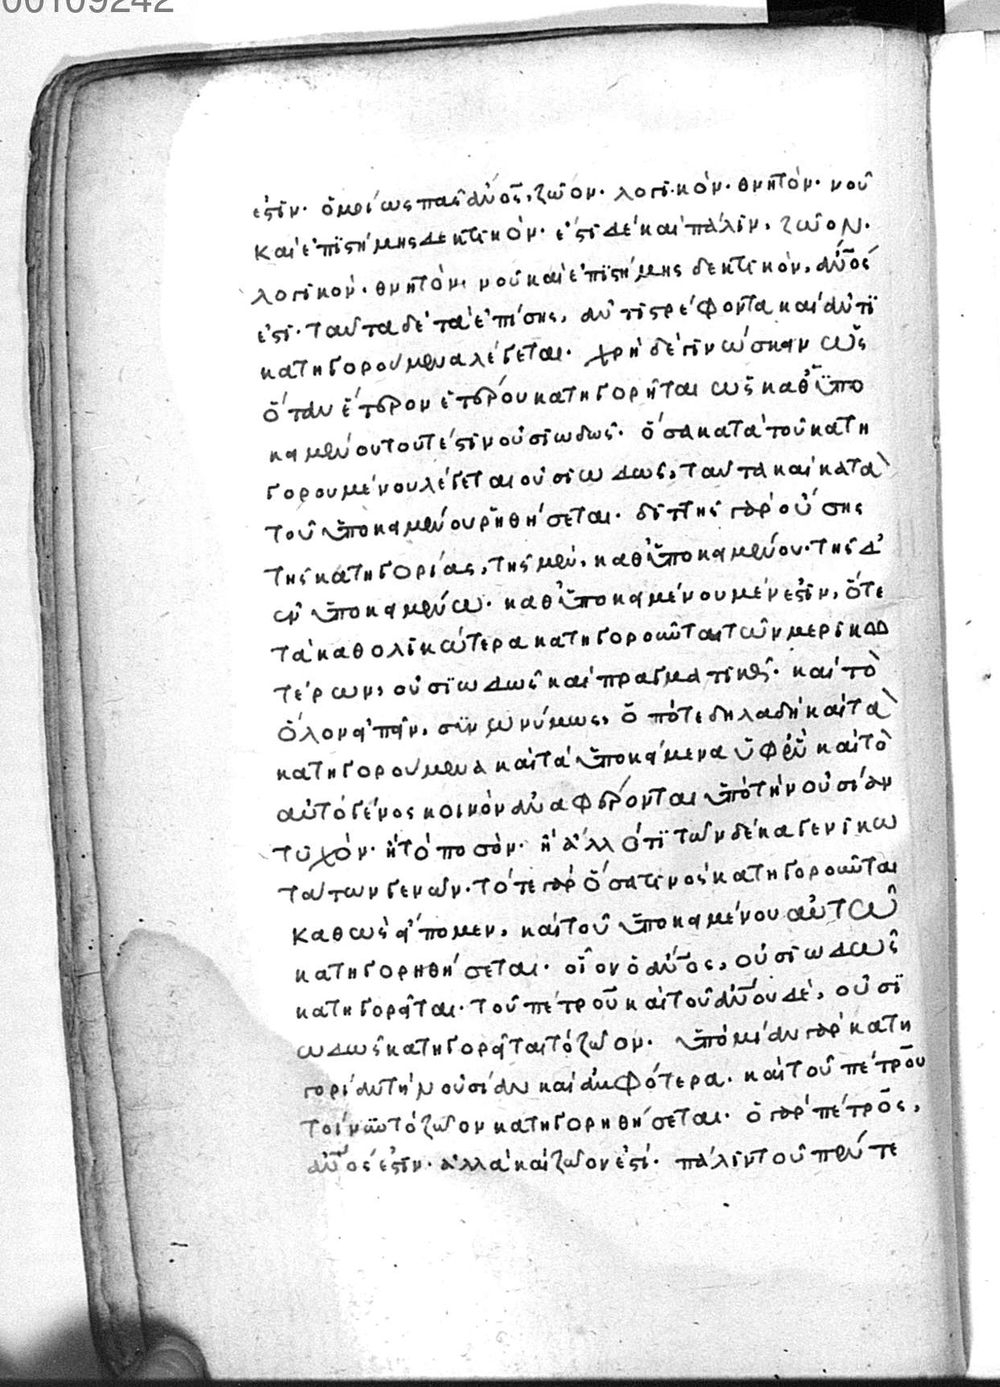 00109242
ἐστιν· ὁμοίως πᾶς ἄνος, ζῶον· λογικὸν· θνητὸν· νοῦ
καὶ ἐπιστήμης δεκτικὸν· ἔστι δὲ καὶ πάλιν, ζῶον·
λογικὸν· θνητὸν· νοῦ καὶ ἐπιστήμης δεκτικὸν, ἄνος
ἐστι· ταῦτα δὲ τὰ ἐπίσης, ἀντιστρέφοντα καὶ ἀντι
κατηγορούμενα λέγεται· χρὴ δὲ γινώσκειν ὡς
ὅταν ἕτερον ἑτέρου κατηγορῆται ὡς καθ ὑπο
κειμένου τουτέστιν οὐσιωδῶς· ὅσα κατὰ τοῦ κατη
γορουμένου λέγεται οὐσιωδῶς, ταῦτα καὶ κατὰ
τοῦ ὑποκειμένου ῥηθήσεται· διττῆς γὰρ οὔσης
τῆς κατηγορίας, τῆς μὲν, καθ ὑποκειμένου· τῆς δ
ἐν ὑποκειμένω· καθ ὑποκειμένου μέν ἐστιν, ὅτε
τὰ καθολικώτερα κατηγοροῦνται τῶν μερικω
τέρων, οὐσιωδῶς καὶ πραγματικῶς· καὶ τὸ
ὅλον εἰπεῖν, συνωνύμως, ὁπότε δηλαδὴ καὶ τὰ
κατηγορούμενα καὶ τὰ ὑποκείμενα ὑφ ἓν καὶ τὸ
αὐτὸ γένος κοινὸν ἀναφέρονται ὑπὸ τὴν οὐσίαν
τυχὸν· ἢ τὸ ποσὸν· ἢ ἄλλό τι τῶν δέκα γενικω
τάτων γενῶν· τότε γὰρ ὅσα τινὸς κατηγοροῦνται
καθὼς εἴπομεν, καὶ τοῦ ὑποκειμένου αὐτῶ
κατηγορηθήσεται· οἷον ὁ ἄνος, οὐσιωδῶς
κατηγορεῖται· τοῦ πέτρου καὶ τοῦ ἄνου δὲ, οὐσι
ωδῶς κατηγορεῖται τὸ ζῶον· ὑπὸ μίαν γὰρ κατη
γορίαν τὴν οὐσίαν καὶ ἀμφότερα. καὶ τοῦ πέτρου
τοίνυν τὸ ζῶον κατηγορηθήσεται· ὁ γὰρ πέτρος,
ἄνος ἐστιν· ἀλλὰ καὶ ζῶον ἐστί· πάλιν τοῦ πεντε